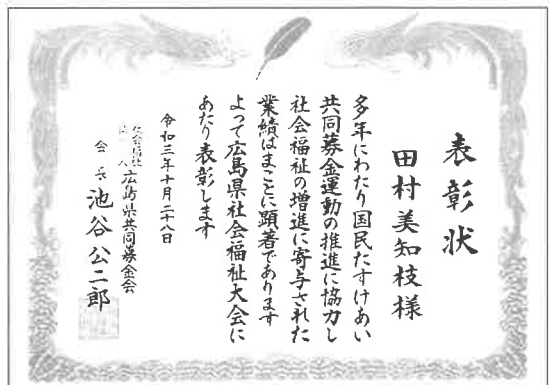 表彰状
田村美知枝様
多年にわたり国民たすけあい
共同募金運動の推進に協力し
社会福祉の増進に寄与された
業績はまことに顕著であります
よって広島県社会福祉大会に
あたり表彰します
令和三年十月二十八日
広島県共同募金会
会長 池谷公二郎